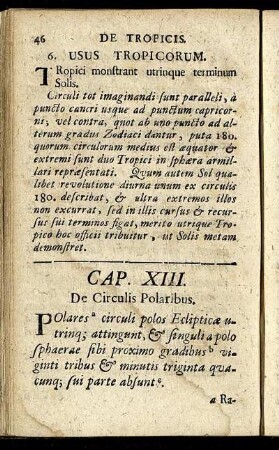 46 DE TROPICIS.
6. USUS TROPICORUM.
TRopici monstrant utrinque terminum
Solis.
Circuli tot imaginandi sunt paralleli, à
puncto cancri usque ad punctum capricor-
ni, vel contra, quot ab uno puncto ad al-
terum gradus Zodiaci dantur, puta 180.
quorum circulorum medius est æquator &
extremi sunt duo Tropici in sphæra armil-
lari repræsentati. Qvum autem Sol qua-
libet revolutione diurna unum ex circulis
180. describat, & ultra extremos illos
non excurrat, sed in illis cursus & recur-
sus sui terminos figat, merito utrique Tro-
pico hoc officii tribuitur, ut Solis metam
demonstret.
CAP. XIII.
De Circulis Polaribus.
POlares a circuli polos Eclipticæ u-
trinq; attingunt, & singuli a polo
sphaerae sibi proximo gradibus b vi-
ginti tribus & minutis triginta qua-
cunq; sui parte absunt c.
a Ra-